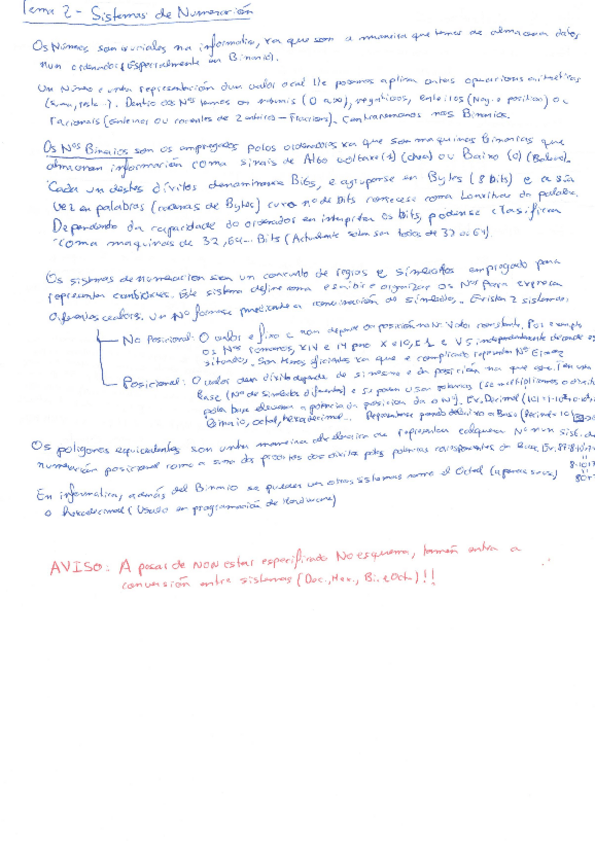 Tema 2 - Sistemas de Numeración
Os Números son cruciales na informatica, xa que son a maneira que temos de almacenar datos
nun ordenador (Especialmente en Binario).
Un Número e unha representación dun valor o cal lle podemos aplicar certas operacions aritmeticas
(suma, resta..). Dentro dos Nºs temos os naturais (0 a ∞), negativos, enteiros (Neg. e positivo) ou
racionais (enteiros ou cocientes de 2 enteiros - Fraccions). Centrarémonos nos Binarios.
Os Nºs Binarios son os empregados polos ordenadores xa que son maquinas Binarias que
almacenan información coma sinais de Alto voltaxe (1) ou Baixo (0)
Cada un destes díxitos denominanse Bits, e agrupanse en Bytes (8 bits) e a súa
vez en palabras (cadenas de Bytes) cuxo nº de Bits coñecese coma Lonxitude da palabra.
Dependendo da capacidade do ordenador en interpretar os bits, podense clasificar
coma maquinas de 32, 64... Bits (Actualmente son todos de 32 ou 64)
Os sistemas de numeracion son un conxunto de regras e símbolos empregado para
representar cantidades. Este sistema define coma escribir e organizar os Nºs para expresar
diferentes valores. Un Nº formase mediante a concatenación de símbolos. Existen 2 sistemas:
No Posicional: O valor e fixo e non depende da posición na que Valor constante. Por exemplo
os Nºs romanos, XIV e 14 pero X = 10, e I = 1 e V 5, independentemente de onde
situados. Son pouco eficientes xa que e complicado representar Nº Grandes
Posicional: O valor dun díxito depende de si mesmo e da posición na que esta. Ten unha
Base (Nº de símbolos diferentes) e se poden usar potencias (se multiplicamos o díxito
pola base elevada a potencia da posición do nº). Ex. Decimal
Binario, octal, hexadecimal... Represéntase poñendo debaixo a Base
Os poligonos equivalentes son unha maneira de representar calquera Nº nun sist. de
numeración posicional coma a suma dos produtos dos díxitos polas potencias correspondentes da Base.
En informatica, además del Binario se pueden ver otros sistemas como el Octal (apenas se usa)
o hexadecimal (Usado en programación de Hardware)
AVISO: A pesar de NON estar especificado No esquema, tamén entra a
conversión entre sistemas (Dec., Hex., Bi. e Oct.)!!